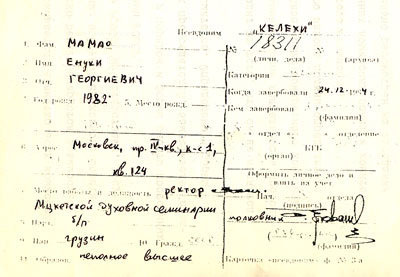 Псевдоним "КЕЛЕХИ"
1. Фам. МАМАО
2. Имя Енуки
3. Отч. ГЕОРГИЕВИЧ
1982
5. Место рожд.
№ 18311
(личн. дела) (архива)
Категория
Когда завербован 24.12.
Кем завербован
(фамилия)
отдел отделение
КГБ
(орган)
6. Адрес Московск, пр. IV-кв., к-с 1,
кв. 124
Оформить личное дело и
взять на учет
Нач. отдела
(подпись)
полковник
(фамилия)
Место работы и должность ректор
Мцхетской духовной семинарии
б/п
9. Нац. грузин 10. Гражд.
11. Образов. неполное высшее
Карточка ф. № 3а